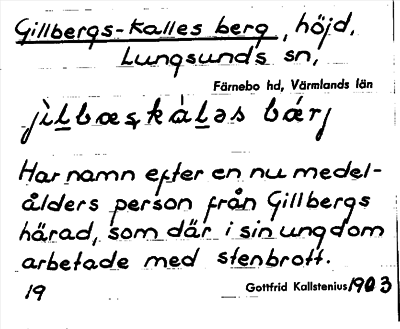 Gillbergs-Kalles berg, höjd,
Lungsunds sn,
Färnebo hd, Värmlands län
jìlbæskàləs bárj
Har namn efter en nu medel-
ålders person från Gillbergs
härad, som där i sin ungdom
arbetade med stenbrott.
19 Gottfrid Kallstenius 1903